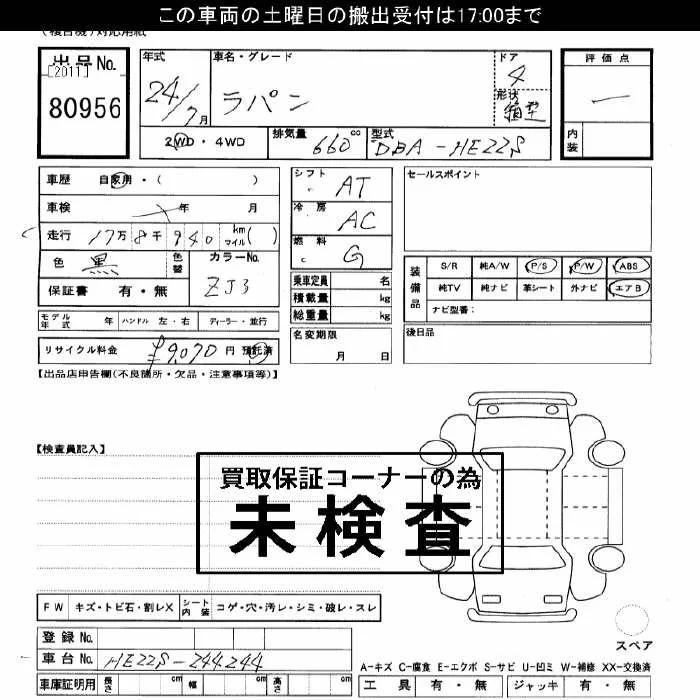 この車両の土曜日の搬出受付は17:00まで
(複合機)対応用紙
出品No. [2011] 80956
年式 24/7月
車名・グレード ラパン
ドア 4
形状 箱型
評価点 一
内装
2WD・4WD 排気量 660cc 型式 DBA-HE22S
車歴 自家用・( )
車検 年 月
走行 17万8千940 km マイル( )
色 黒 色替 カラーNo. ZJ3
保証書 有・無
シフト AT
冷房 AC
燃料 G
乗車定員 名
積載量 kg
総重量 kg
セールスポイント
装備品 S/R 純A/W P/S P/W ABS
純TV 純ナビ 革シート 外ナビ エアB
ナビ型番:
モデル年式 年 ハンドル 左・右 ディーラー・並行
名変期限 月 日
後日品
リサイクル料金 ¥9,070円 預託済
【出品店申告欄(不良箇所・欠品・注意事項等)】
【検査員記入】
買取保証コーナーの為
未検査
FW キズ・トビ石・割レX シート内装 コゲ・穴・汚レ・シミ・破レ・スレ
スペア
登録No.
車台No. HE22S-244244
A-キズ C-腐食 E-エクボ S-サビ U-凹ミ W-補修 XX-交換済
車庫証明用 長さ cm 幅 cm 高さ cm
工具 有・無 ジャッキ 有・無